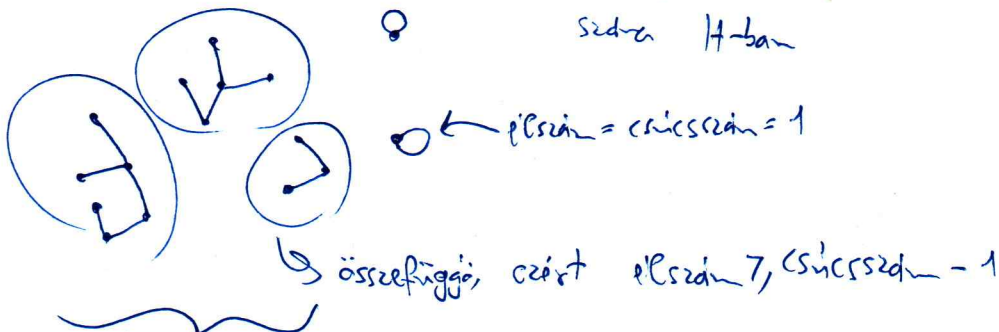 száma H-ban
élszám = csúcsszám = 1
összefüggő, ezért élszám ≥ csúcsszám - 1